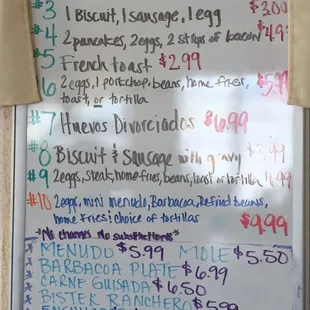 #3 1 Biscuit, 1 sausage, 1 egg $3.00
#4 2 pancakes, 2 eggs, 2 strips of bacon $4.9
#5 French toast $2.99
#6 2 eggs, 1 porkchop, beans, home fries, $5.99
toast, or tortilla
#7 Huevos Divorciados $6.99
#8 Biscuit & Sausage with gravy $3.99
#9 2 eggs, steak, home fries, beans, toast or tortilla $6.99
#10 2 eggs, mini menudo, Barbacoa, Refried beans,
home fries; choice of tortillas $9.99
*No changes No substitutions*
MENUDO $5.99 MOLE $5.50
BARBACOA PLATE $6.99
CARNE GUISADA $6.50
BISTEK RANCHERO $5.99